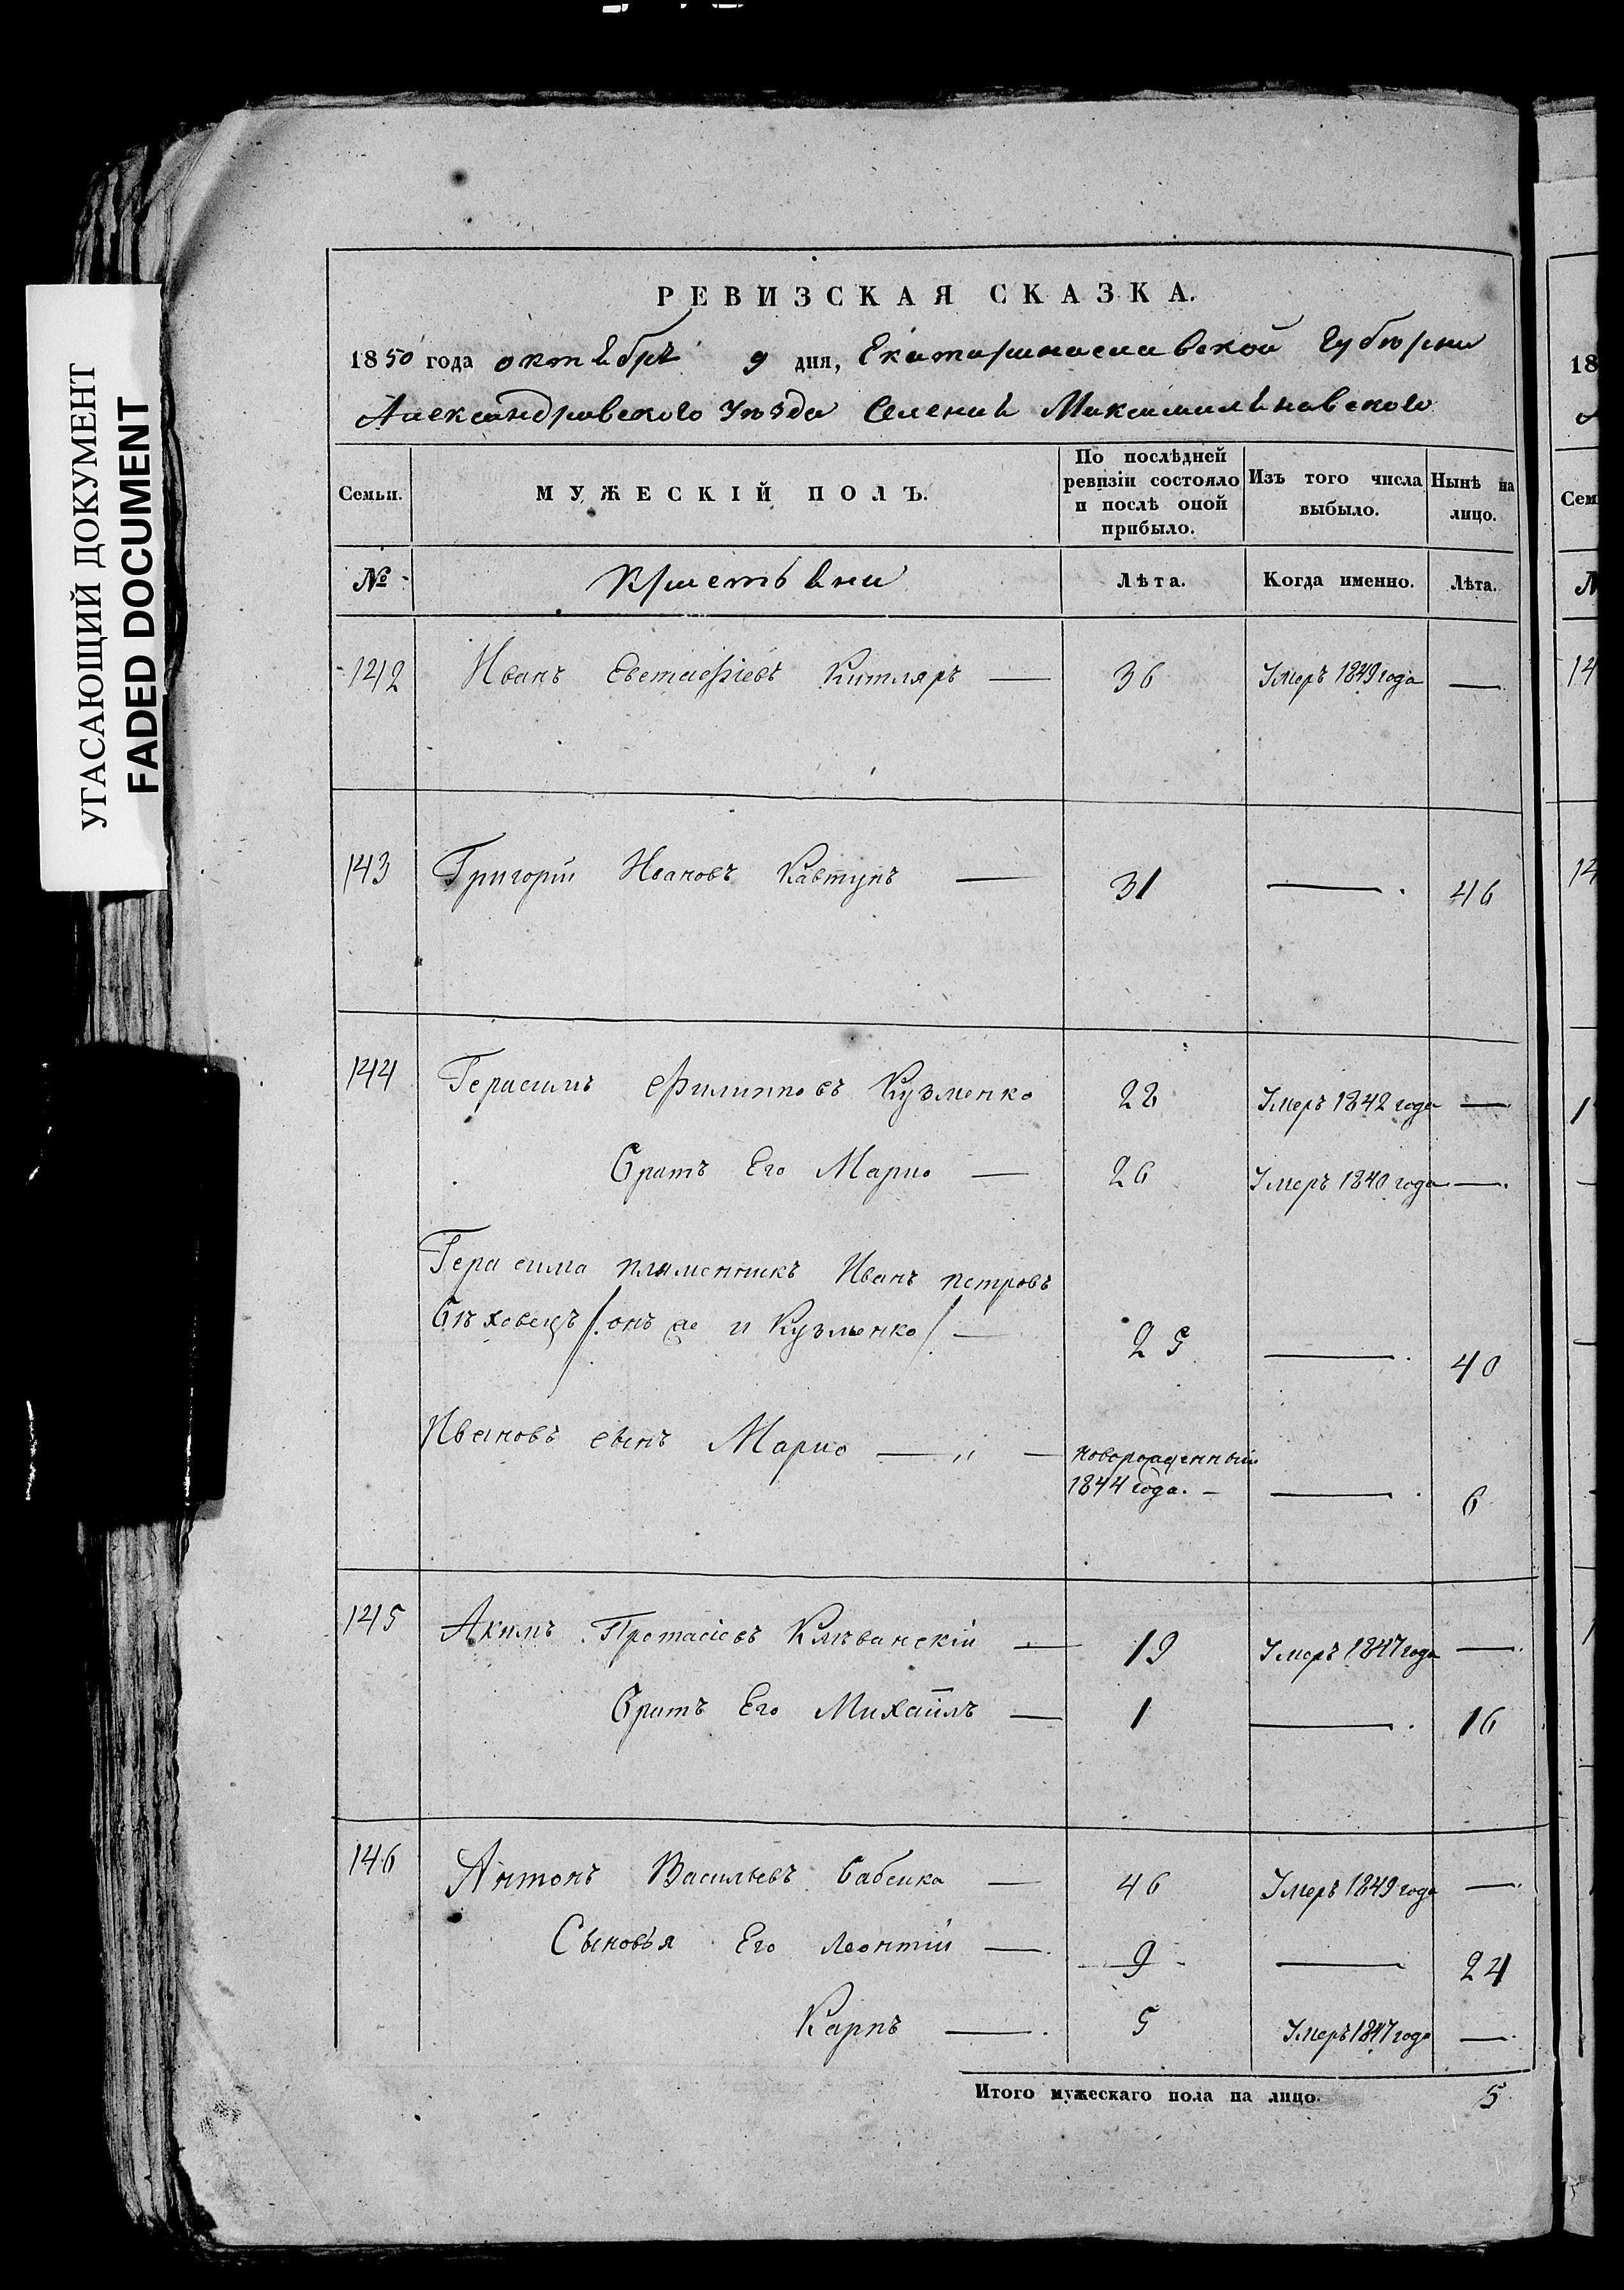 УГАСАЮЩИЙ ДОКУМЕНТ
FADED DOCUMENT
РЕВИЗСКАЯ СКАЗКА.
1850 года октября 9 дня, Екатеринославской Губерни
Александровского Уезда Селения Максимиляновского
Семьи. МУЖЕСКІЙ ПОЛЪ. По послѣдней ревизіи состояло и послѣ оной прибыло. Изъ того числа выбыло. Нынѣ на лицо.
№ Крестьяни Лѣта. Когда именно. Лѣта.
142 Иванъ Евстафіевъ Китляръ — 36 Умеръ 1849 года —
143 Григорій Ивановъ Кавтунъ — 31 — 46
144 Герасимъ Филипповъ Кузменко 22 Умеръ 1842 года —
Братъ Его Марко — 26 Умеръ 1840 года —
Герасима племенникъ Иванъ петровъ
онъ же и Кузменко — 25 — 40
Ивановъ сынъ Марко — новорожденный
1844 года. — — 6
145 Акимъ Протасіевъ — 19 Умеръ 1847 года —
Братъ Его Михаилъ — 1 — 16
146 Антонъ Васильевъ Бабенко — 46 Умеръ 1849 года —
Сыновья Его Леонтій — 9 — 24
Карпъ — 5 Умеръ 1847 года —
Итого мужескаго пола на лицо. 5